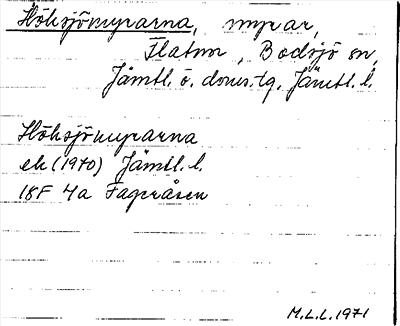 Höksjömyrarna, myrar,
Flatnor, Bodsjö sn,
Jämtl. ö. doms.tg. Jämtl. l.
Höksjömyrarna
ek (1970) Jämtl. l.
18F 4a Fageråsen
M.L.L. 1971